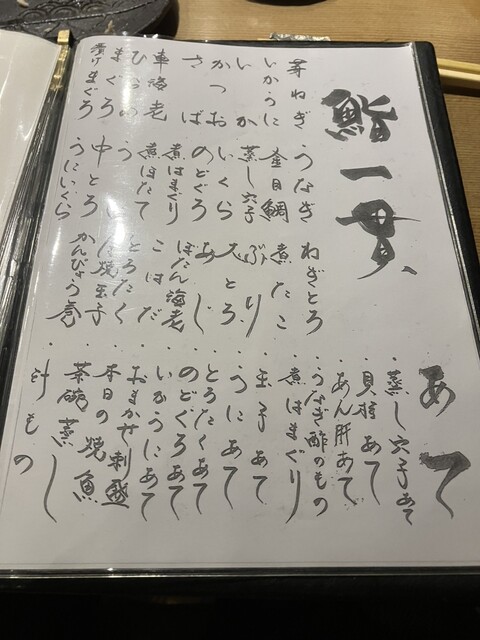 鮨一貫、
芽ねぎ
いかうに
いか
かつお
さば
車海老
ひらめ
まぐろ
漬けまぐろ
うなぎ
金目鯛
蒸し穴子
いくら
のどぐろ
煮はまぐり
煮ほたて
うに
中とろ
うにいくら
ねぎとろ
煮たこ
ぶり
大とろ
あじ
ぼたん海老
こはだ
とろたく
焼玉子
かんぴょう巻
あて
・蒸し穴子あて
・貝柱あて
・あん肝あて
・うなぎ酢のもの
・煮はまぐり
・玉子あて
・うにあて
・とろたくあて
・のどぐろあて
・いかうにあて
・おまかせ刺盛
・本日の焼魚
・茶碗蒸し
・汁もの